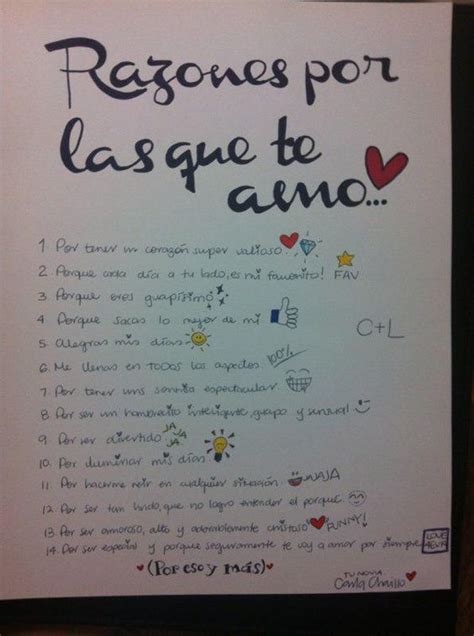 Razones por
las que te
amo...
1. Por tener un corazón super valioso.
2. Porque cada día a tu lado, es mi favorito! FAV
3. Porque eres guapísimo
4. Porque sacas lo mejor de mi
C+L
5. Alegras mis días
6. Me llenas en TODOS los aspectos. 100%
7. Por tener una sonrisa espectacular.
8. Por ser un hombrecito inteligente, guapo y sensual
9. Por ser divertido JA JA JA
10. Por iluminar mis días
11. Por hacerme reír en cualquier situación.
12. Por ser tan lindo, que no logro entender el porque.
13. Por ser amoroso, alto y adorablemente chistoso FUNNY!
14. Por ser especial y porque seguramente te voy a amar por siempre LOVE 4EVR
(Por eso y más)
TU NOVIA
Carla